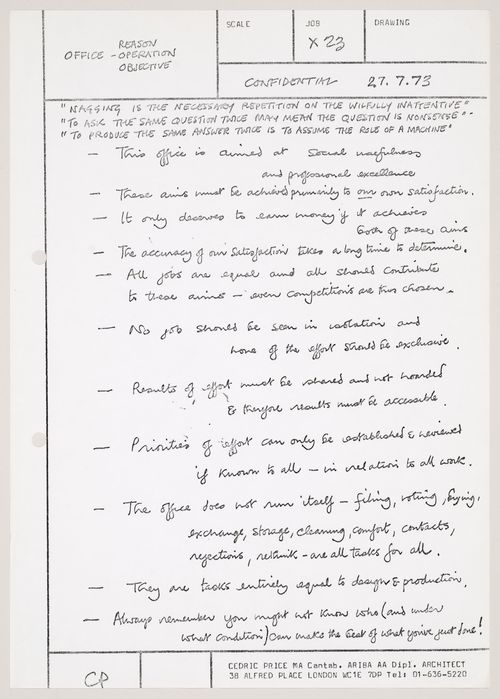 REASON
OFFICE - OPERATION
OBJECTIVE
SCALE
JOB
X23
DRAWING
CONFIDENTIAL
27.7.73
"NAGGING IS THE NECESSARY REPETITION ON THE WILFULLY INATTENTIVE"
"TO ASK THE SAME QUESTION TWICE MAY MEAN THE QUESTION IS NONSENSE"-
"TO PRODUCE THE SAME ANSWER TWICE IS TO ASSUME THE ROLE OF A MACHINE"
- This office is aimed at social usefulness
and professional excellence
- These aims must be achieved primarily to our own satisfaction.
- It only deserves to earn money if it achieves
both of these aims
- The accuracy of our satisfaction takes a long time to determine.
- All jobs are equal and all should contribute
to these aims - even competitions are thus chosen.
- No job should be seen in isolation and
none of the effort should be exclusive.
- Results of effort must be shared and not hoarded
& therefore results must be accessible.
- Priorities of effort can only be established & reviewed
if known to all - in relation to all work.
- The office does not run itself - filing, noting, buying,
exchange, storage, cleaning, comfort, contacts,
rejections, - are all tasks for all.
- They are tasks entirely equal to design & production.
- Always remember you might not know who (and under
what condition) can make the best of what you've just done!
CP
CEDRIC PRICE MA Cantab. ARIBA AA Dipl. ARCHITECT
38 ALFRED PLACE LONDON WC1E 7DP Tel: 01-636-5220